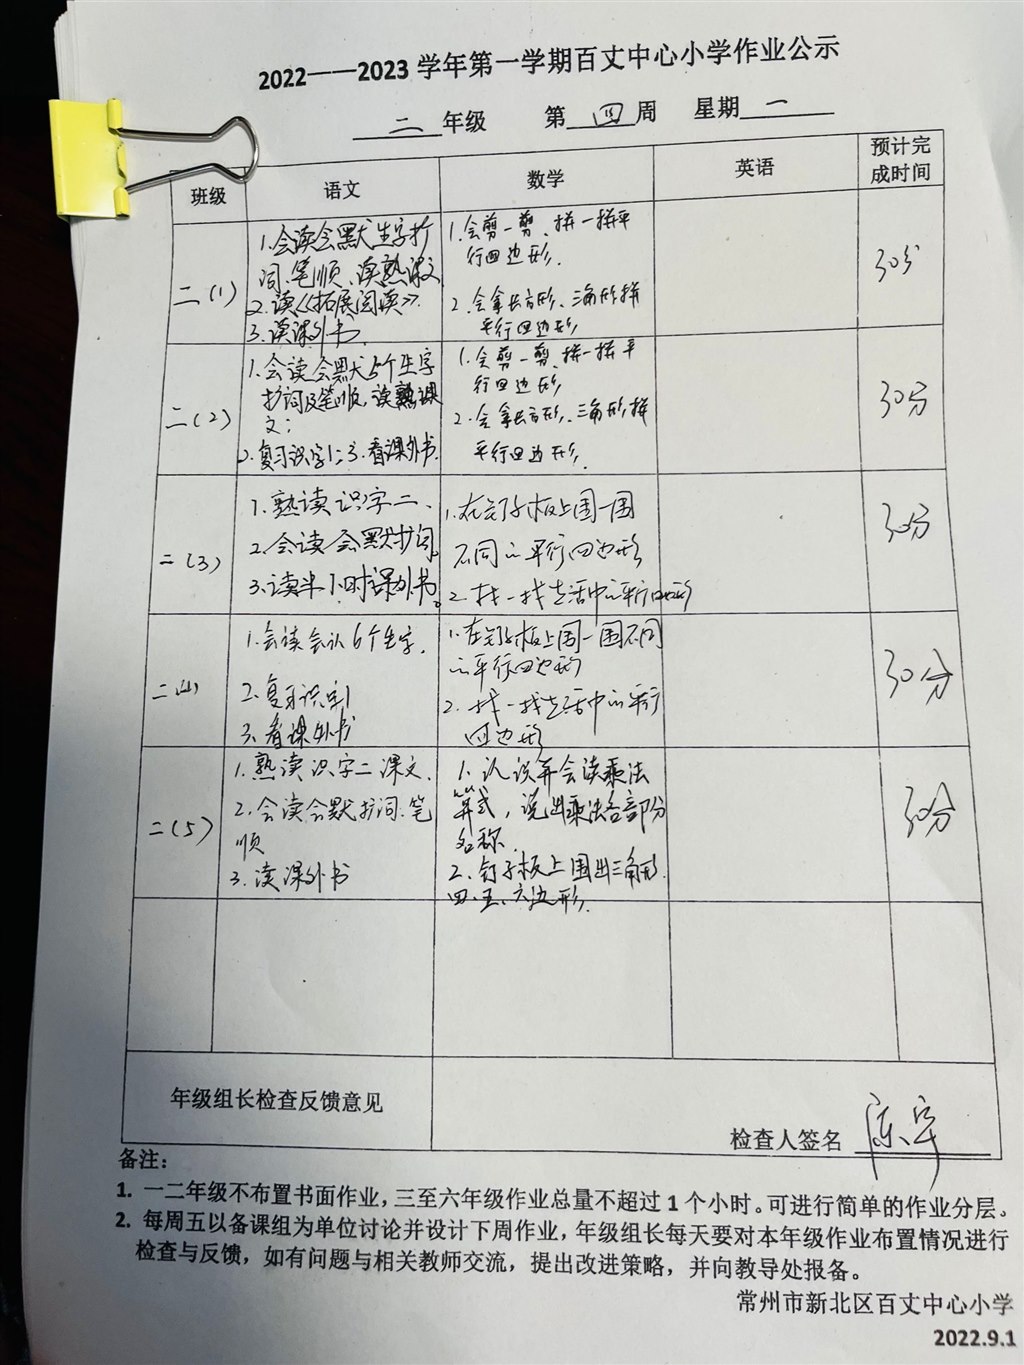 2022——2023 学年第一学期百丈中心小学作业公示
二 年级 第 四 周 星期 一
班级 语文 数学 英语 预计完
成时间
二(1)
1.会读会默生字扩
词、笔顺、读熟课文
2.读《拓展阅读》.
3.读课外书.
1.会剪一剪、拼一拼平
行四边形.
2.会拿长方形、三角形拼
平行四边形
30分
二(2)
1.会读会默5个生字
扩词及笔顺,读熟课
文;
2.复习识字1;3.看课外书.
1.会剪一剪、拼一拼平
行四边形
2.会拿长方形、三角形拼
平行四边形.
30分
二(3)
1.熟读识字二、
2.会读会默扩词。
3.读半小时课外书。
1.在钉子板上围一围
不同的平行四边形
2.找一找生活中的平行四边形
30分
二(4)
1.会读会认6个生字.
2.复习识字1
3.看课外书
1.在钉子板上围一围不同
的平行四边形
2.找一找生活中的平行
四边形
30分
二(5)
1.熟读识字二课文.
2.会读会默扩词.笔
顺
3.读课外书
1.认识并会读乘法
算式,说出乘法各部分
名称.
2.钉子板上围出三角形.
四、五、六边形.
30分
年级组长检查反馈意见
检查人签名
备注:
1. 一二年级不布置书面作业,三至六年级作业总量不超过 1 个小时。可进行简单的作业分层。
2. 每周五以备课组为单位讨论并设计下周作业,年级组长每天要对本年级作业布置情况进行
检查与反馈,如有问题与相关教师交流,提出改进策略,并向教导处报备。
常州市新北区百丈中心小学
2022.9.1